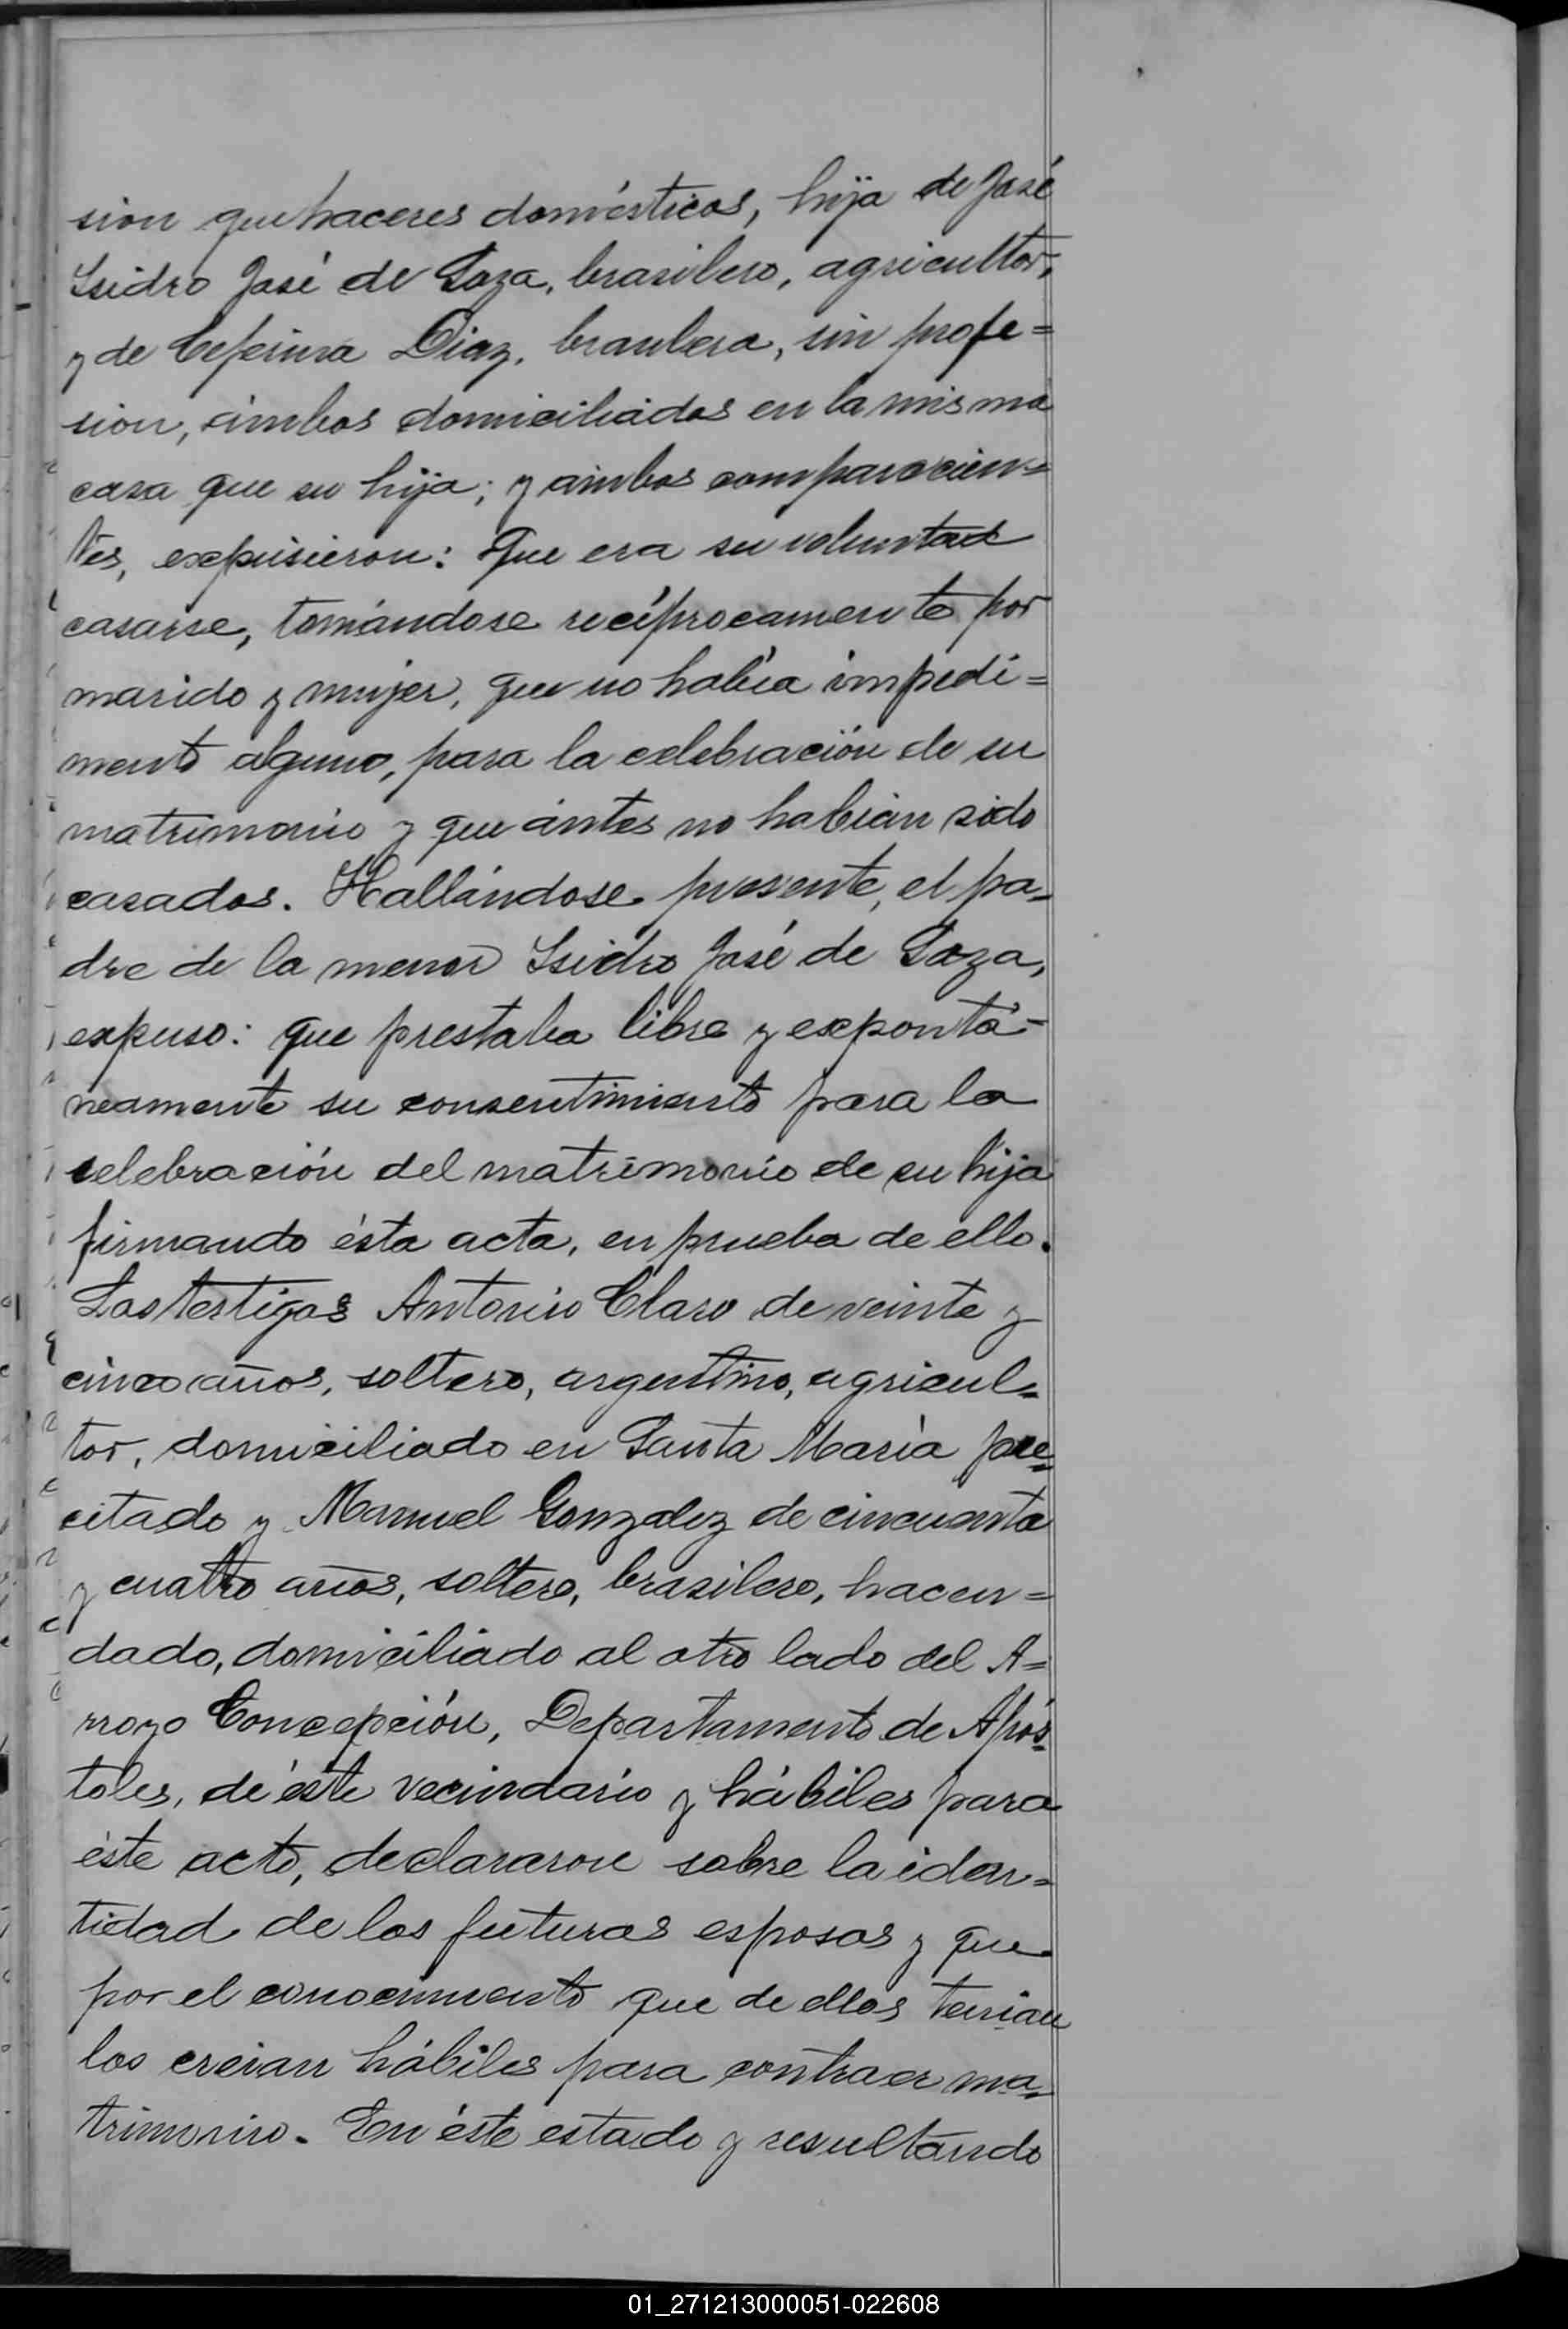 sion quehaceres domésticos, hija de José
Isidro José de Soza, brasilero, agricultor,
y de Ceferina Diaz, brasilera, sin profe=
sion, ámbos domiciliados en la misma
casa que su hija; y ámbos comparecien=
tes, expusieron: Que era su voluntad
casarse, tomándose recíprocamente por
marido y mujer, que no había impedi=
mento alguno, para la celebración de su
matrimonio y que ántes no habian sido
casados. Hallándose presente, el pa=
dre de la menor Isidro José de Soza,
expuso: que prestaba libre y expontá-
neamente su consentimiento para la
celebración del matrimonio de su hija
firmando ésta acta, en prueba de ello.
Los testigos Antonio Claro de veinte y
cinco años, soltero, argentino, agricul=
tor, domiciliado en Santa María pre=
citado y Manuel Gonzalez de cincuenta
y cuatro años, soltero, brasilero, hacen=
dado, domiciliado al otro lado del A=
rroyo Concepción, Departamento de Após=
toles, de éste vecindario y hábiles para
éste acto, declararon sobre la iden=
tidad de los futuros esposos y que
por el conocimiento que de ellos tenian
los creian hábiles para contraer ma=
trimonio. En éste estado y resultando
01_271213000051-022608